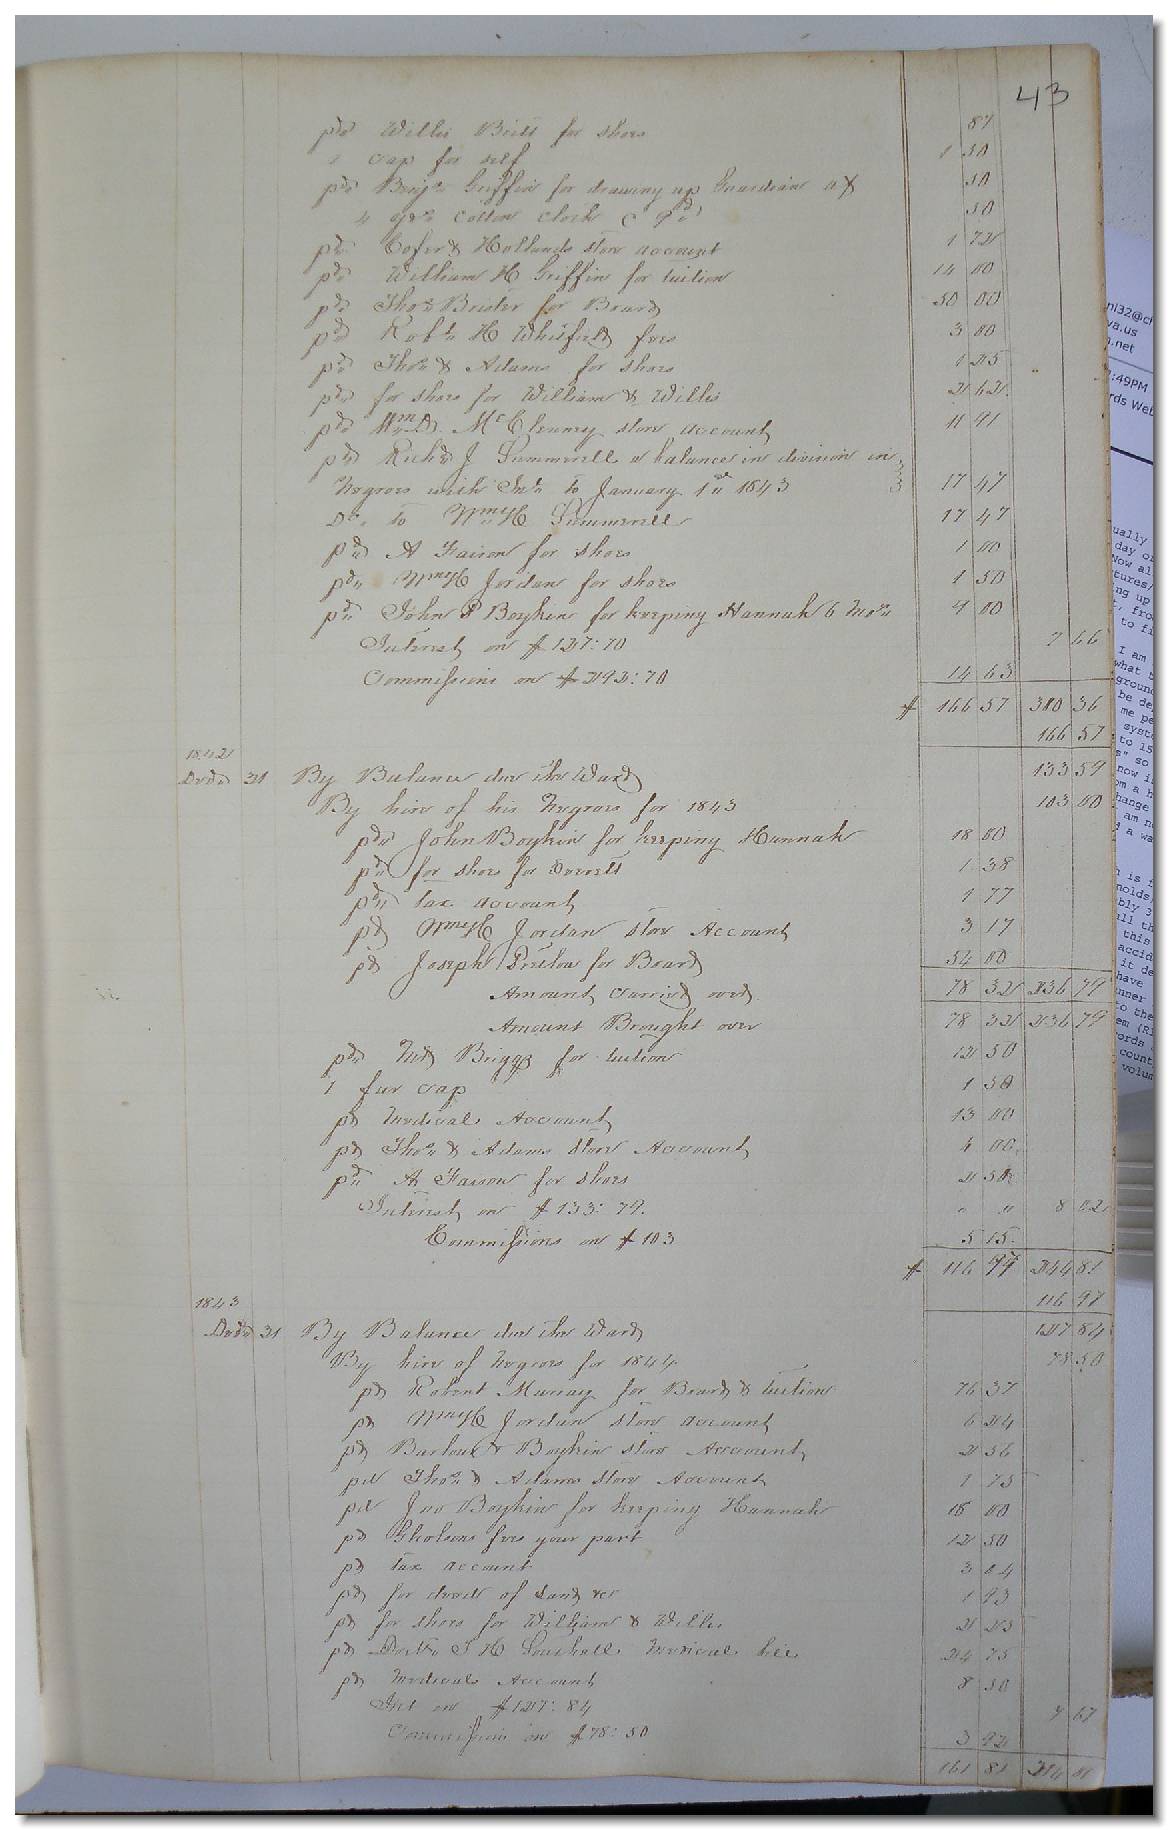 43
pd Willis Britt for shoes 87
1 Cap for self 1 50
pd Benjn Griffin for drawing up Guardian a/c 50
4 yds Cotton Cloth 50
pd Cofer & Hollands store account 1 72
pd William H Griffin for tuition 14 00
pd Thos Brister for Board 50 00
pd Robt H Whitfield fees 3 00
pd Thos & Adams for shoes 1 25
pd for shoes for William & Willis 2 62
pd Wm D McClenney store account 11 91
pd Richd J Summerell a balance in division in
Negroes with Int to January 1st 1843 17 47
Do to Wm H Summerell 17 47
pd A Faison for shoes 1 00
pd Wm H Jordan for shoes 1 50
pd John P Boykin for keeping Hannah 6 Mos 9 00
Interest on $127:70 7 66
Commissions on $292:70 14 63
$ 166 57 300 36
166 57
1842
Decr 31 By Balance due the Ward 133 59
By hire of his Negroes for 1843 103 00
pd John Boykin for keeping Hannah 18 00
pd for shoes for 1 38
pd tax account 1 77
pd Wm H Jordan store Account 3 17
pd Joseph for Board 54 00
Amount Carried over 78 32 236 79
Amount Brought over 78 32 236 79
pd Briggs for tuition 12 50
1 fur cap 1 50
pd Medical Account 13 00
pd Thos & Adams store Account 4 00
pd A Faison for shoes 2 50
Interest on $133:79. " " 8 02
Commissions on $103 5 15
$ 116 97 244 81
116 97
1843
Decr 31 By Balance due the Ward 127 84
By hire of Negroes for 1844 78 50
pd Robert Murray for Board & tuition 76 37
pd Wm H Jordan store account 6 24
pd Barlow & Boykin store Account 2 36
pd Thos & Adams store Account 1 75
pd Jno Boykin for keeping Hannah 18 00
pd Gholsons fees your part 12 50
pd tax account 3 04
pd for deeds of Land &c 1 93
pd for shoes for William & Willis 2 25
pd Doctr S H Medical bill 24 75
pd Medical Account 8 50
Int on $127:84 7 67
Commission on $78:50 3 92
161 81 214 01